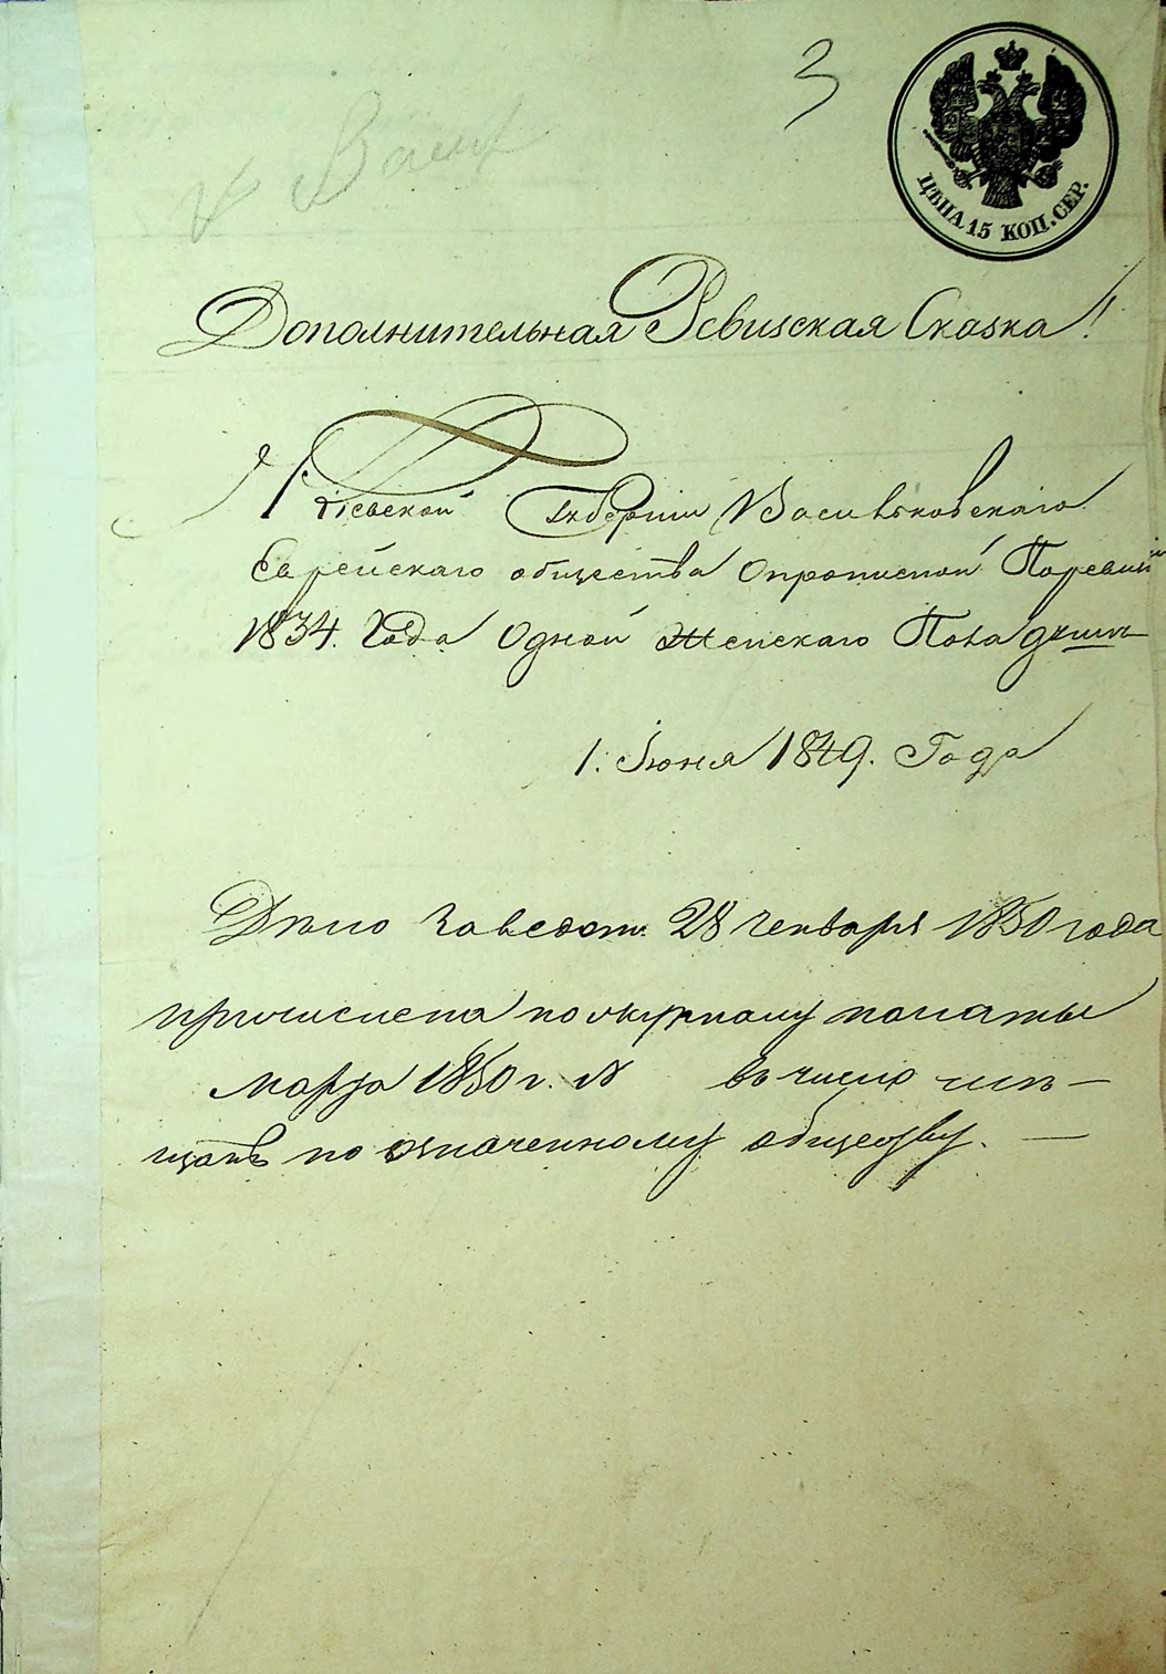 3
ЦѢНА 15 КОП. СЕР.
Дополнительная Ревизская Сказка!
Кіевской Губерніи Васильковскаго
Еврейскаго общества Опрописной Поревизіи
1834. Года Одной Женскаго Пола души
1. Іюня 1849. Года
Дѣло 28 Генваря 1850 года
причислена по палаты
марта 1850 г. № въ число мѣ-
щанъ по означенному обществу. —